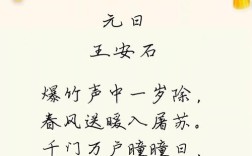 元日
王安石
爆竹声中一岁除，
春风送暖入屠苏。
千门万户曈曈日，